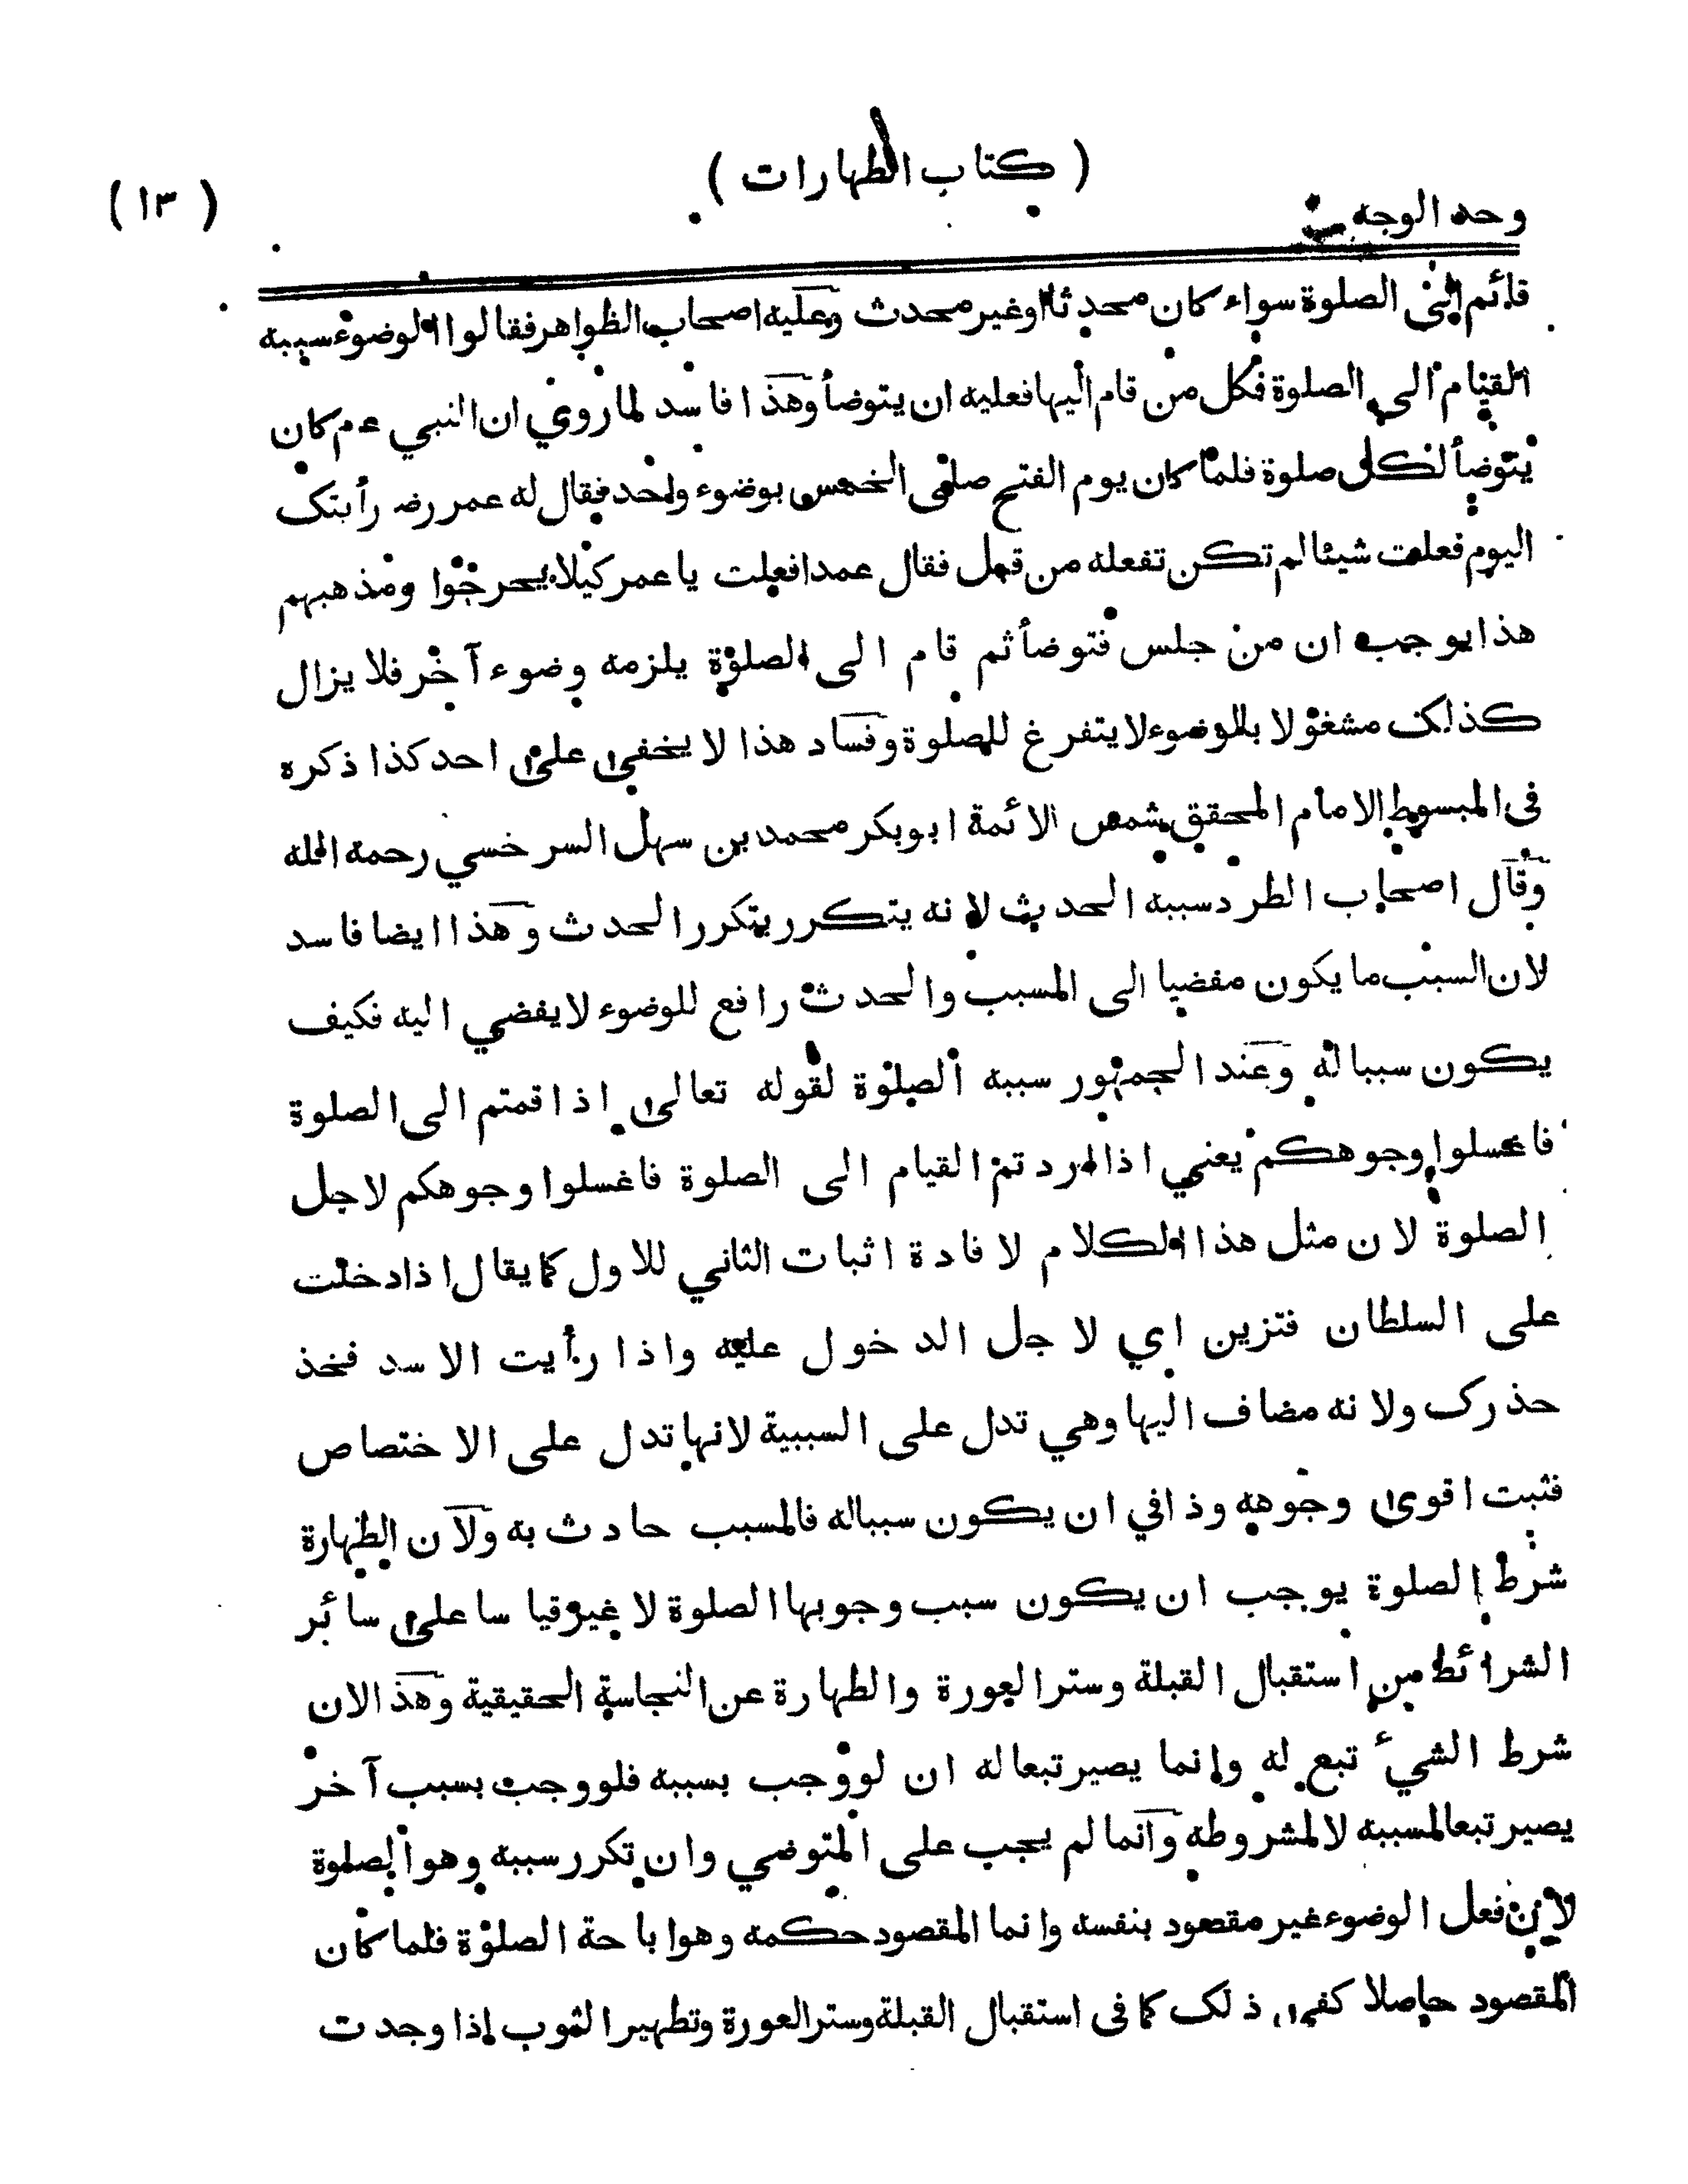 ( كتاب الطهارات )
( ١٣ )
وحد الوجه
قائم الى الصلوة سواء كان محدثا اوغير محدث وعليه اصحاب الظواهر فقالوا الوضوء سببه
القيام الى الصلوة فكل من قام اليها فعليه ان يتوضأ وهذا فاسد لما روي ان النبي عم كان
يتوضأ لكل صلوة فلما كان يوم الفتح صلى الخمس بوضوء واحد فقال له عمر رضه رأيتك
اليوم فعلت شيئا لم تكن تفعله من قبل فقال عمدا فعلت يا عمر كيلا يحرجوا ومذهبهم
هذا يوجب ان من جلس فتوضأ ثم قام الى الصلوة يلزمه وضوء آخر فلا يزال
كذلك مشغولا بالوضوء لا يتفرغ للصلوة وفساد هذا لا يخفى على احد كذا ذكره
فى المبسوط الامام المحقق شمس الائمة ابو بكر محمد بن سهل السرخسي رحمه الله
وقال اصحاب الطرد سببه الحدث لانه يتكرر بتكرر الحدث وهذا ايضا فاسد
لان السبب ما يكون مفضيا الى المسبب والحدث رافع للوضوء لا يفضي اليه فكيف
يكون سببا له وعند الجمهور سببه الصلوة لقوله تعالى اذا قمتم الى الصلوة
فاغسلوا وجوهكم يعني اذا اردتم القيام الى الصلوة فاغسلوا وجوهكم لاجل
الصلوة لان مثل هذا الكلام لافادة اثبات الثاني للاول كما يقال اذا دخلت
على السلطان فتزين اي لاجل الدخول عليه واذا رأيت الاسد فخذ
حذرك ولانه مضاف اليها وهي تدل على السببية لانها تدل على الاختصاص
فثبت اقوى وجوهه وذا في ان يكون سببا له فالمسبب حادث به ولان الطهارة
شرط الصلوة يوجب ان يكون سبب وجوبها الصلوة لا غير قياسا على سائر
الشرائط من استقبال القبلة وستر العورة والطهارة عن النجاسة الحقيقية وهذا لان
شرط الشيء تبع له وانما يصير تبعا له ان لو وجب بسببه فلو وجب بسبب آخر
يصير تبعا لمسببه لا لمشروطه وانما لم يجب على المتوضي وان تكرر سببه وهو الصلوة
لان فعل الوضوء غير مقصود بنفسه وانما المقصود حكمه وهو اباحة الصلوة فلما كان
المقصود حاصلا كفى ذلك كما فى استقبال القبلة وستر العورة وتطهير الثوب اذا وجدت